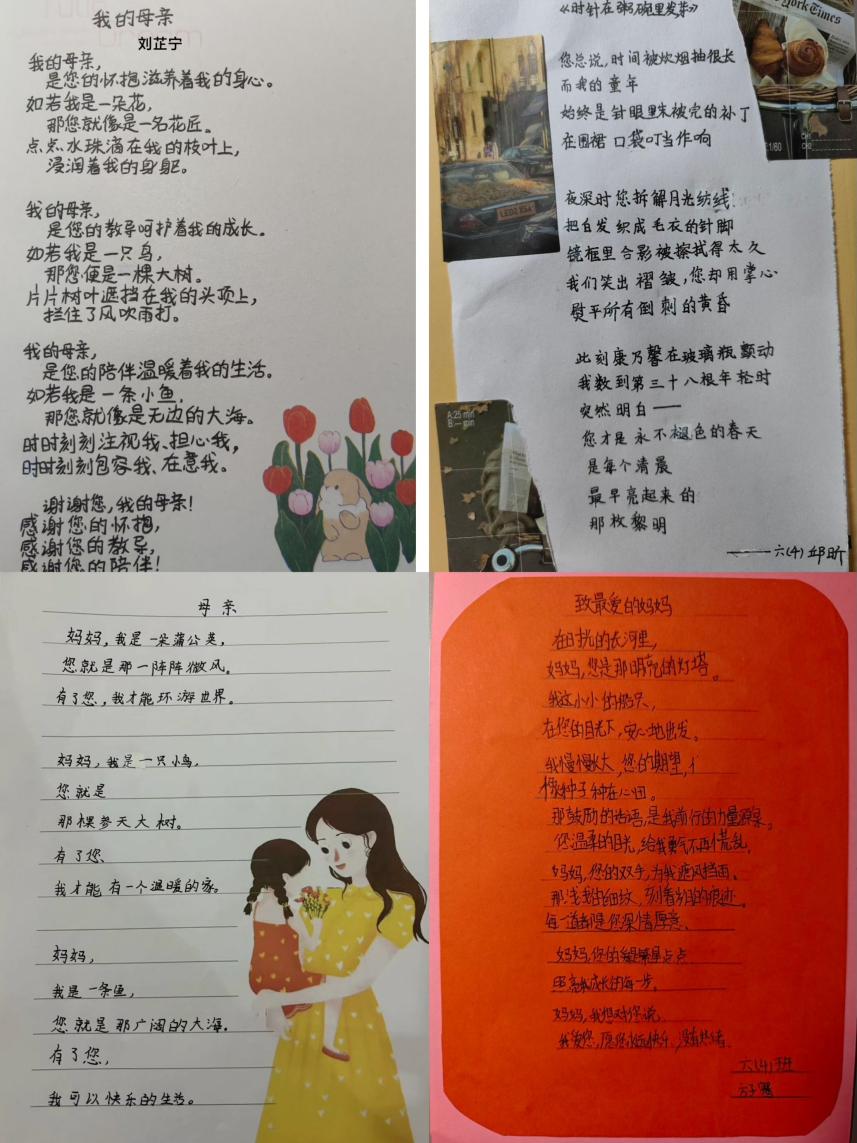 我的母亲
刘芷宁
我的母亲,
是您的怀抱滋养着我的身心。
如若我是一朵花,
那您就像是一名花匠。
点点水珠滴在我的枝叶上,
浸润着我的身躯。
我的母亲,
是您的教导呵护着我的成长。
如若我是一只鸟,
那您便是一棵大树。
片片树叶遮挡在我的头顶上,
拦住了风吹雨打。
我的母亲,
是您的陪伴温暖着我的生活。
如若我是一条小鱼,
那您就像是无边的大海。
时时刻刻注视我、担心我,
时时刻刻包容我、在意我。
谢谢您,我的母亲!
感谢您的怀抱,
感谢您的教导,
感谢您的陪伴!
《时针在粥碗里发芽》
您总说,时间被炊烟抽很长
而我的童年
始终是针眼里未被完的补丁
在围裙口袋叮当作响
夜深时您拆解月光纺线
把白发织成毛衣的针脚
镜框里合影被擦拭得太久
我们笑出褶皱,您却用掌心
熨平所有倒刺的黄昏
此刻康乃馨在玻璃瓶颤动
我数到第三十八根年轮时
突然明白——
您才是永不褪色的春天
是每个清晨
最早亮起来的
那枚黎明
——六(4)邱昕
York Times
1/60
LE02 ES4
A:25 min
母亲
妈妈,我是一朵蒲公英,
您就是那一阵阵微风。
有了您,我才能环游世界。
妈妈,我是一只小鸟,
您就是
那棵参天大树。
有了您、
我才能有一个温暖的家。
妈妈,
我是一条鱼,
您就是那广阔的大海。
有了您,
我可以快乐的生活。
致最爱的妈妈
在时光的长河里,
妈妈,您是那明亮的灯塔。
我这小小的船只,
在您的目光下,安心地出发。
我慢慢长大,您的期望,
像种子种在心田。
那鼓励的话语,是我前行的力量源泉。
您温柔的目光,给我勇气不再慌乱。
妈妈,您的双手,为我遮风挡雨。
那浅浅的细纹,刻着岁月的痕迹。
每一道都是您深情厚意、
妈妈,您的爱是繁星点点
照亮我成长的每一步。
妈妈,我想对您说
我爱您,愿您永远快乐、没有忧绪。
六(4)班